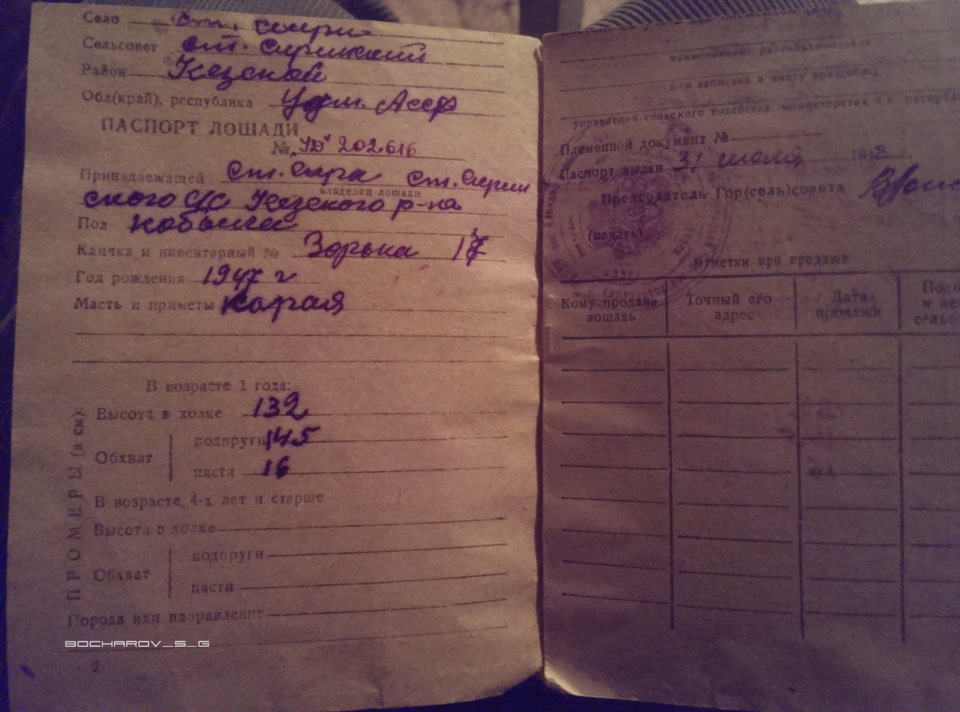 Село
Сельсовет ст.
Район Кезский
Обл(край), республика Удм. Асср
ПАСПОРТ ЛОШАДИ
№ 202616
Принадлежащей ст. ст.
владелец лошади
ского с/с Кезского р-на
Пол кобыла
Кличка и инвентарный № Зорька 17
Год рождения 1947 г
Масть и приметы Карая
В возрасте 1 года:
Высота в холке 132
Обхват
подпруги 145
пясти 16
В возрасте 4-х лет и старше
Высота в холке
Обхват
подпруги
пясти
Порода или направление
ПРОМЕРЫ (в см):
BOCHAROV_S_G
2
или записана в книгу
управления сельского хозяйства, министерства с х
Племенной документ №
Паспорт выдан 31 июля
Председатель Гор(сель)совета
(печать)
Отметки при продаже
Кому продана лошадь
Точный его адрес
Дата продажи